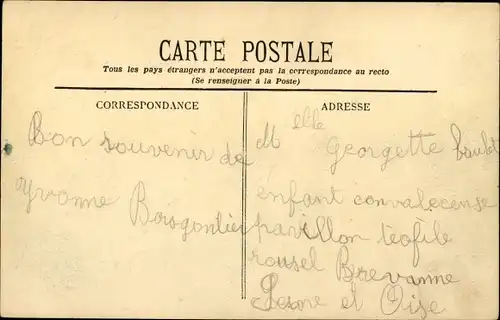 CARTE POSTALE
Tous les pays étrangers n'acceptent pas la correspondance au recto
(Se renseigner à la Poste)
CORRESPONDANCE
ADRESSE
Bon souvenir de
Yvonne
Melle
Georgette
enfant convalecense
pavillon téofile
rousel Brevanne
Seine et Oise